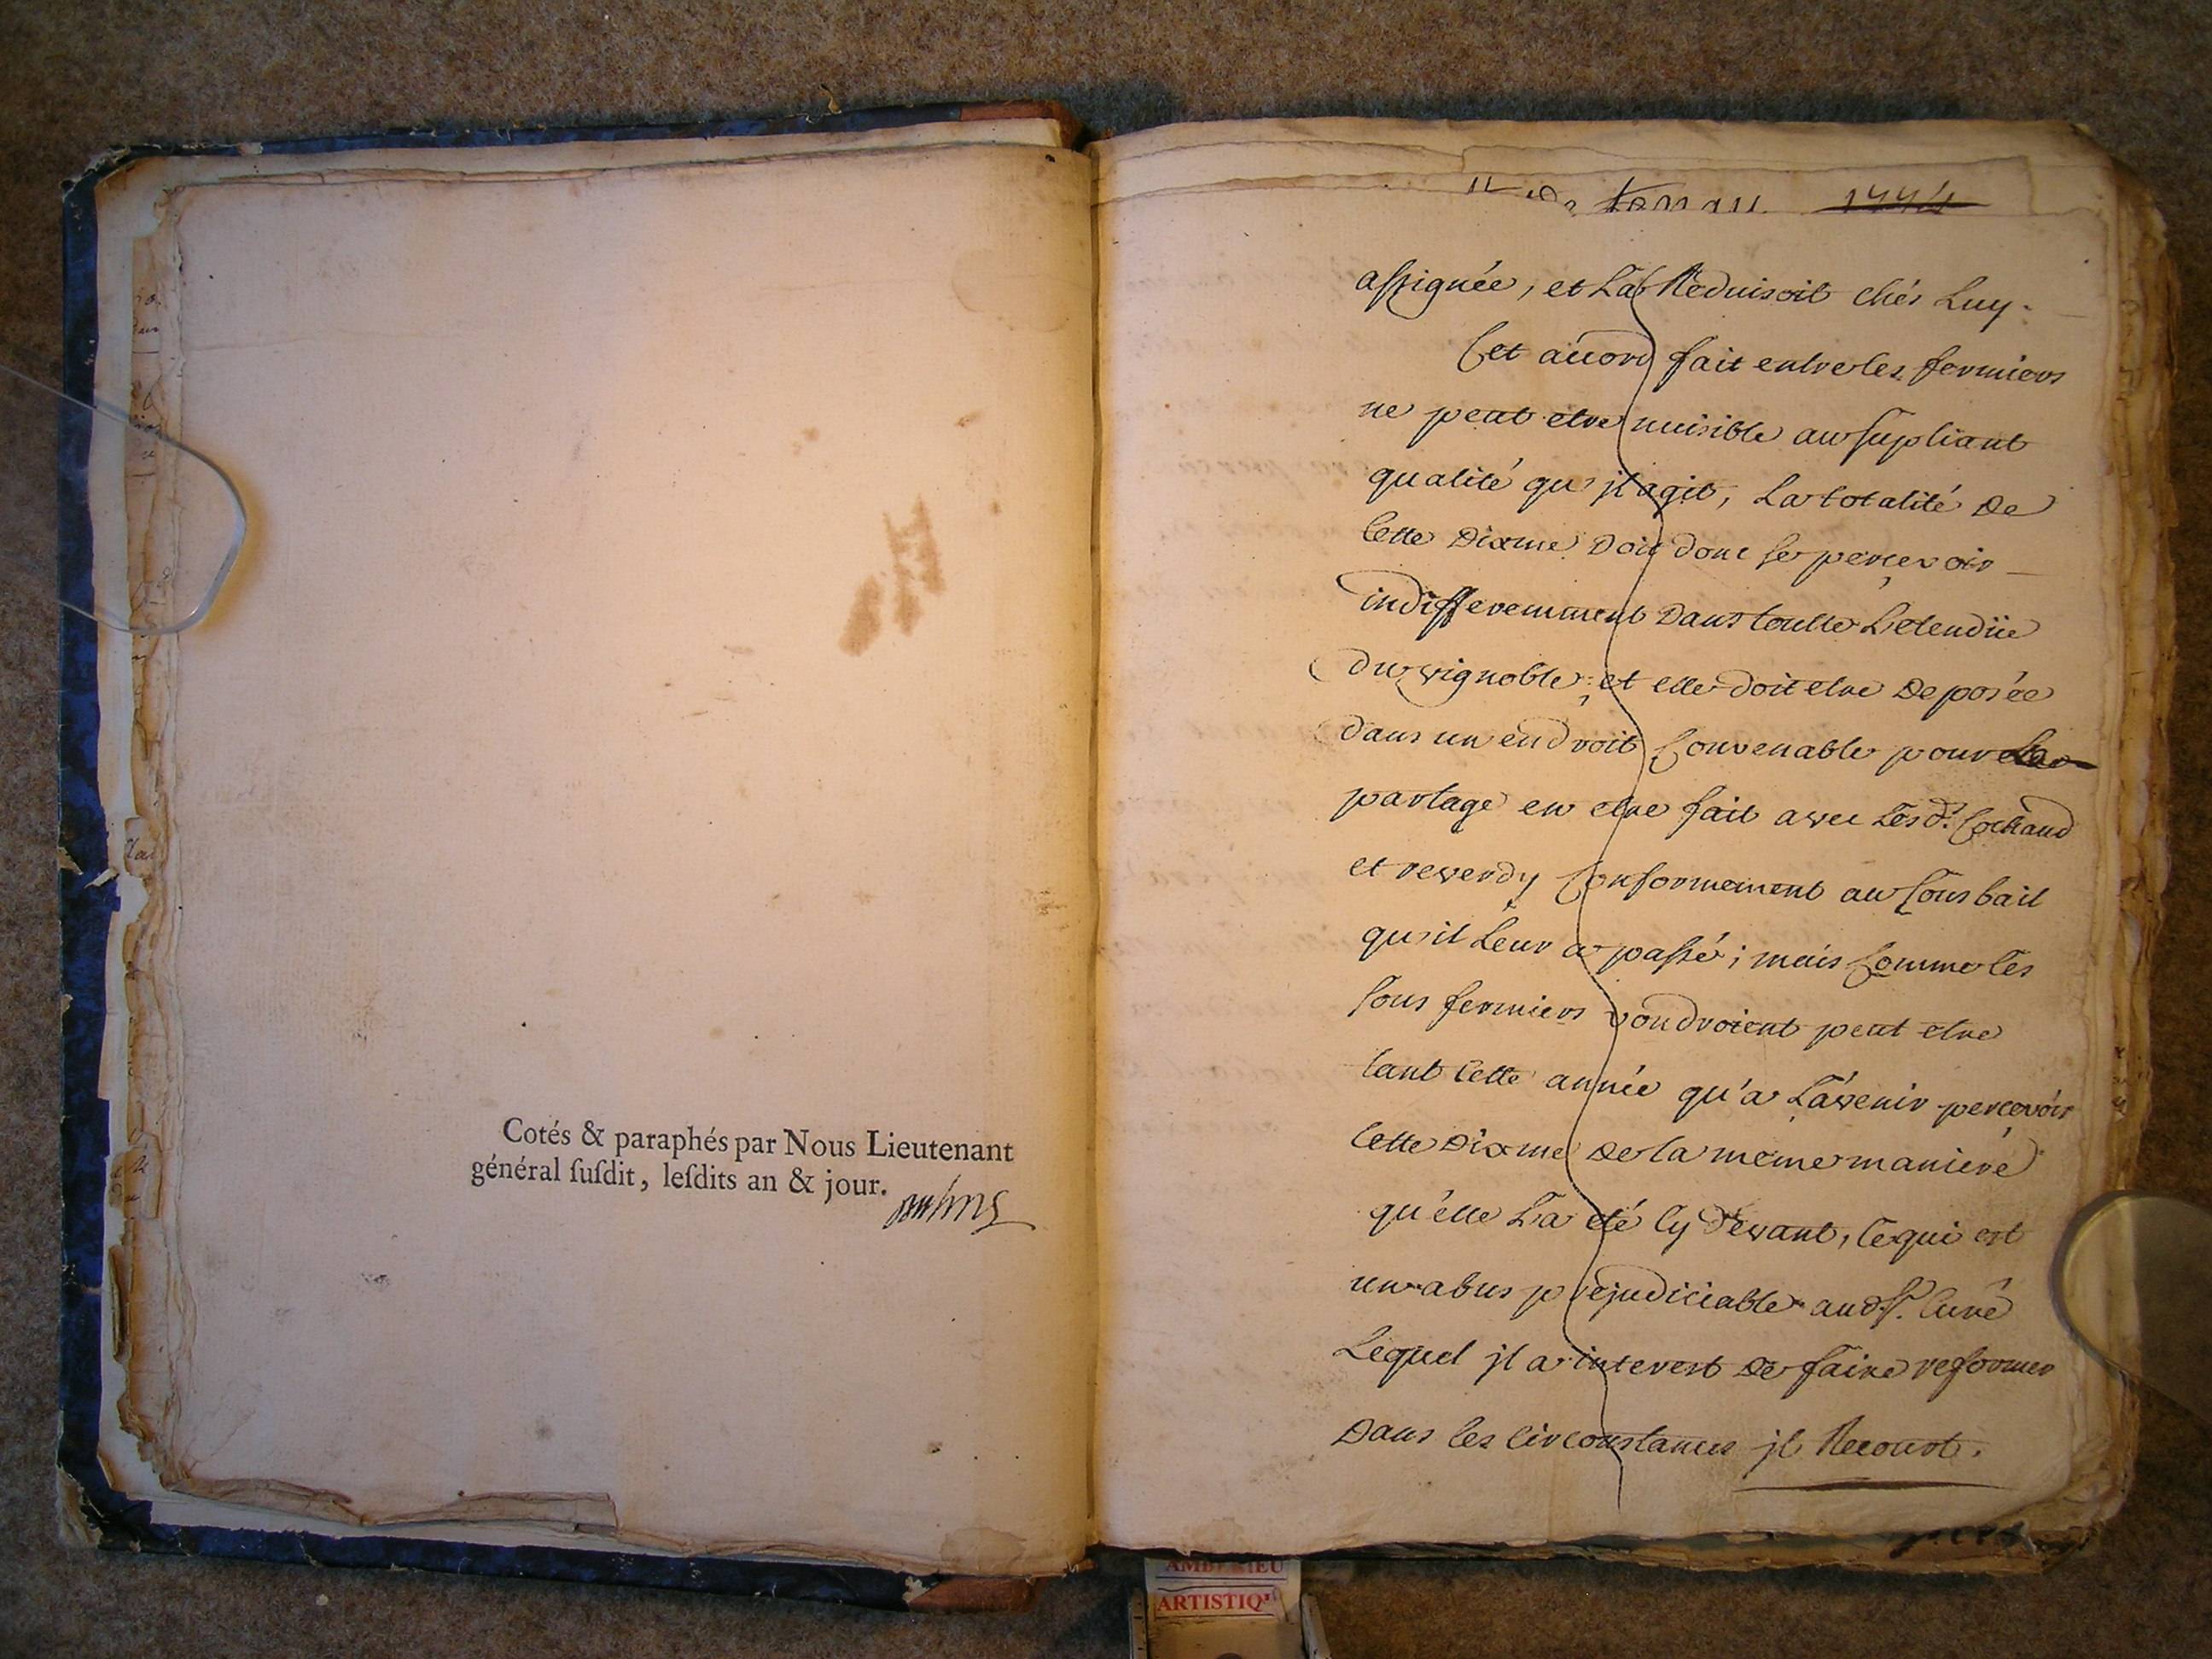 Cotés & paraphés par Nous Lieutenant
général ſuſdit, leſdits an & jour.
aſsignée, et La Reduisoit chés Luy.
Cet accord fait entre les fermiers
ne peut etre nuisible au supliant
qualité qu'jl agit, La totalité De
Cette Dixme Doit donc se perçevoir
indifferemment Dans toutte L'etendüe
du vignoble; et elle doit etre Deposée
dans un endroit Convenable pour Le
partage en etre fait avec Les d. Cochand
et reverdy Conformement au Sous bail
qu'il Leur a paſsé; mais Comme les
Sous fermiers voudroient peut etre
tant Cette année qu'a L'avenir percevoir
Cette Dixme De la meme maniere
qu'elle L'a eté Cy Devant, Ce qui est
un abus prejudiciable aud. S. Curé
Lequel jl a interest De faire reformer
Dans les Circonstances jl Recourt.
AMBERIEU
ARTISTIQ